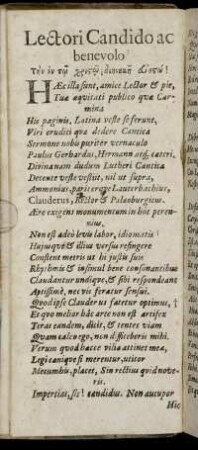 Lectori Candido ac
benevolo
HÆc illa sunt, amice Lector & pie,
Tuæ æquitati publico quæ Carmina
His paginis, Latina veste se ferunt,
Viri eruditi quæ dedere Cantica
Sermone nobis puriter vernaculo
Paulus Gerhardus, Hermann atq; cæteri,
Divinanam dudum Lutheri Cantica
Decente veste vestit, nil ut supra,
Ammonius, pari crape Lauterbachius,
Clauderus, Rector & Palæoburgicus.
Ære exigens monumentum in hoc perennius,
Non est adeò levis labor, idiomatis
Hujusque & illius versus refingere
Constent metris ut hi justis suis
Rhythmis & insimul bene consonantibus
Claudantur undique, & sibi respondeant
Aptissimè, nec vis feratur sensui.
Quod ipse Clauder ut fatetur optimus,
Et quo melior hâc arte non est artifex
Teras eandem, dicit, & tentes viam
Quam calco ego, non difficeberis mihi.
Verum quod hæcce vilia attinet mea,
Legi canique si merentur, utitor
Mecum bis, placet, Sin rectius quid noveris.
Impertias, sic candidus. Non aucupor
Hic